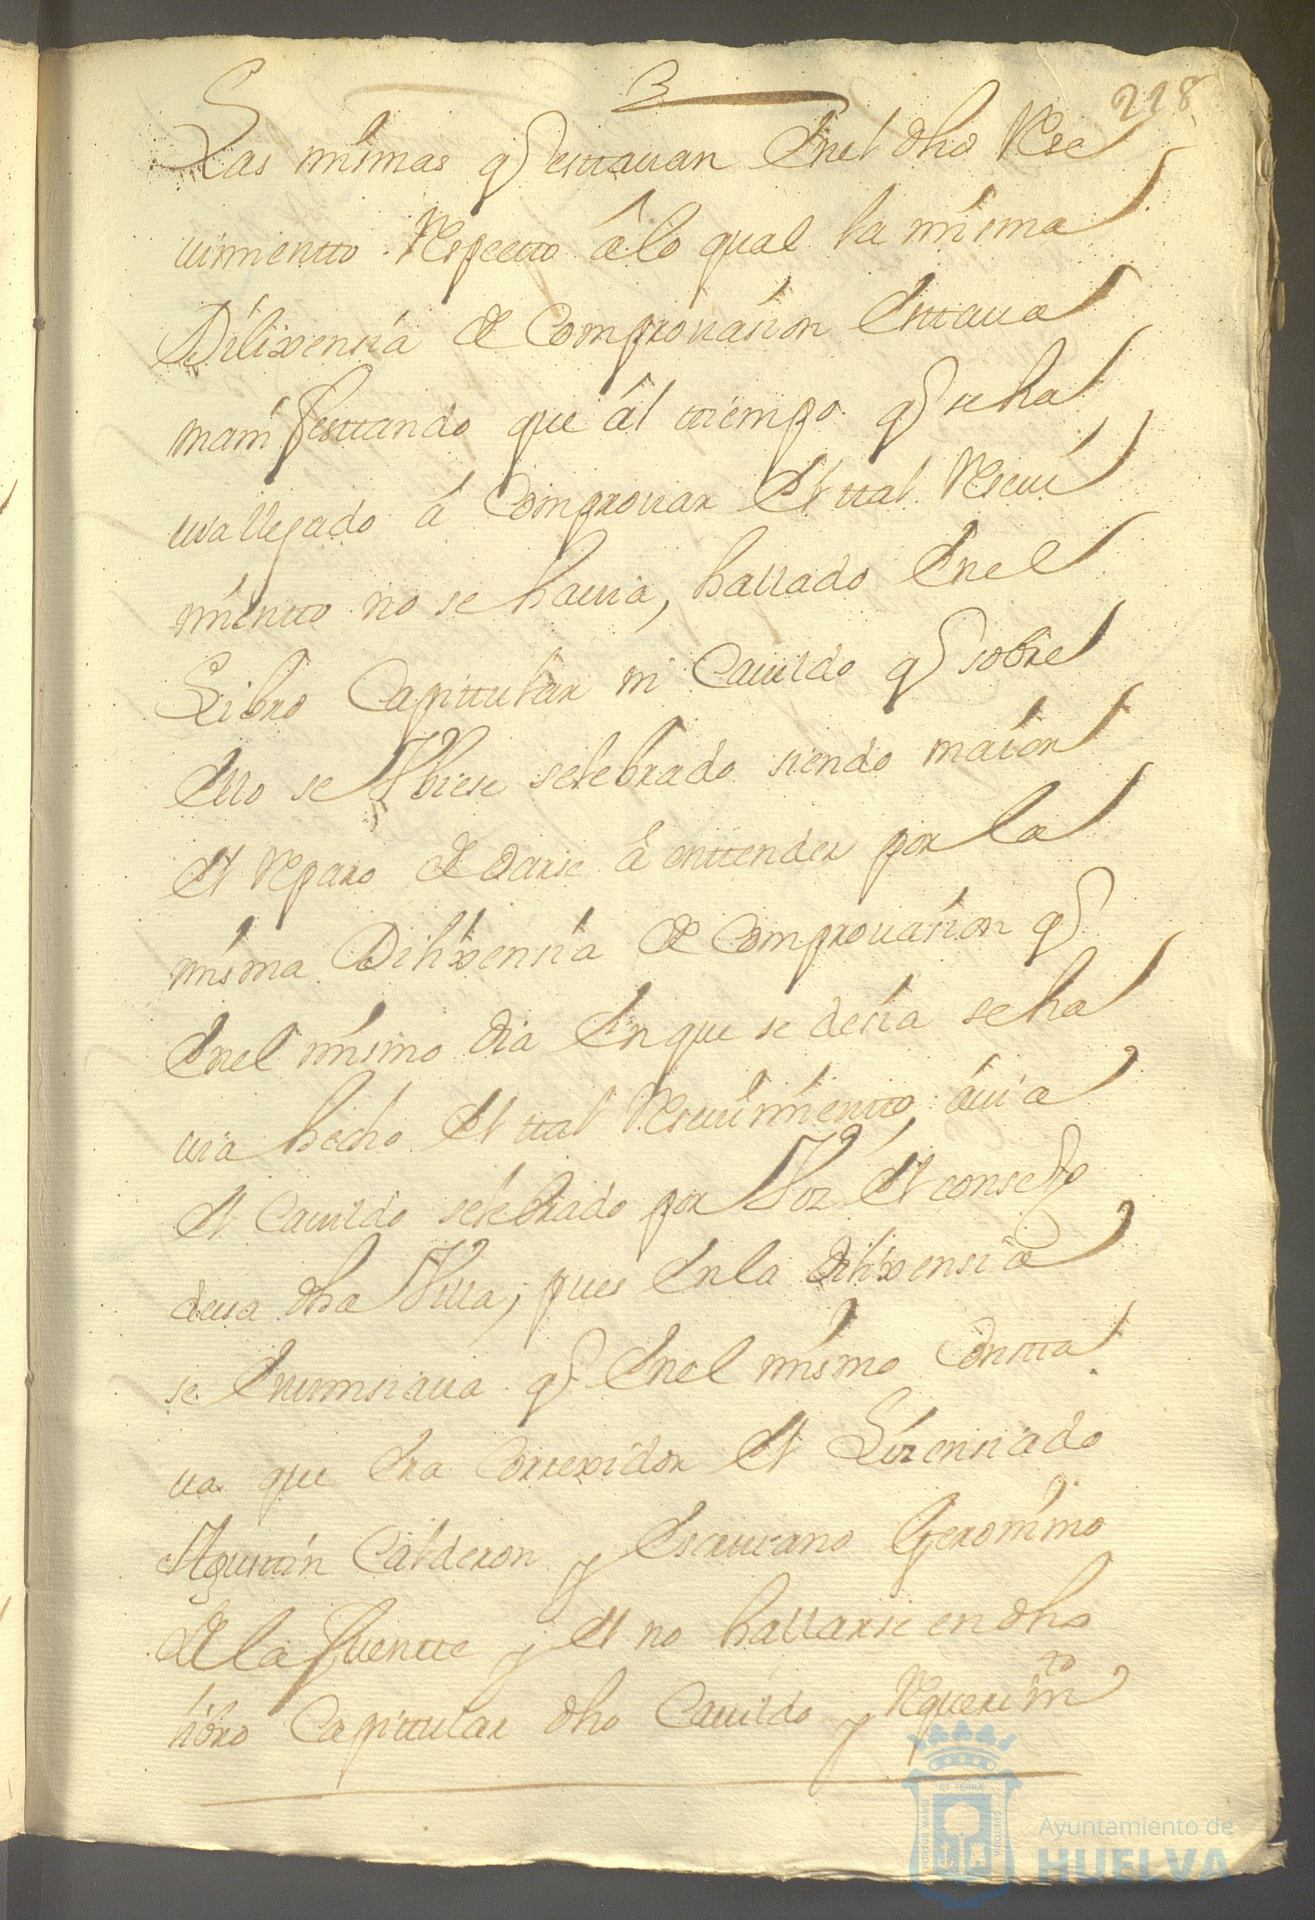 3
218
Las mismas q estauan Enel dho Rese
uimientto Respecto âlo qual la misma
Dilixensia de Comprouasion Esttaua
manifesttando que âl tiempo q se ha
uia llegado â Comprouar El ttal Resiui
mientto no se hauia, hallado Enel
Libro Capittular ni Cauildo q sobre
Ello se Vbiese selebrado siendo maior
el Reparo de darse â enttender por la
misma Dilixensia de Comprouasion q
Enel mismo dia En que se desia se ha
uia hecho El ttal Resiuimientto, âuia
el Cauildo selebrado por Voz del consejo
desa dha Villa; pues Enla dilixensia
se Enunsiaua q Enel mismo Constta
ua que Era Correxidor el Lizensiado
Agusttin Calderon y Escriuano Geronimo
de la fuentte y el no hallarse en dho
libro Capittular dho Cauildo y Requerimto
Ayuntamiento de
HUELVA